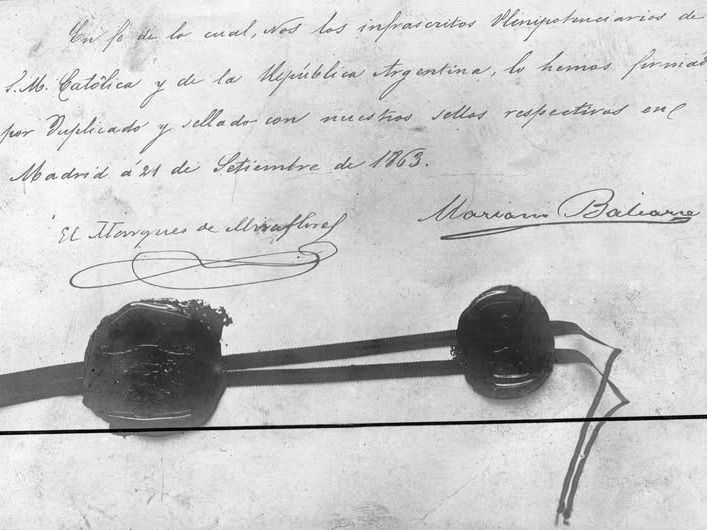 En fé de lo cual, Nos los infrascritos Plenipotenciarios de
S. M. Católica y de la República Argentina, lo hemos firmad
por duplicado y sellado con nuestros sellos respectivos en
Madrid á 21 de Setiembre de 1863.
El Marques de Miraflores
Mariano Balcarce